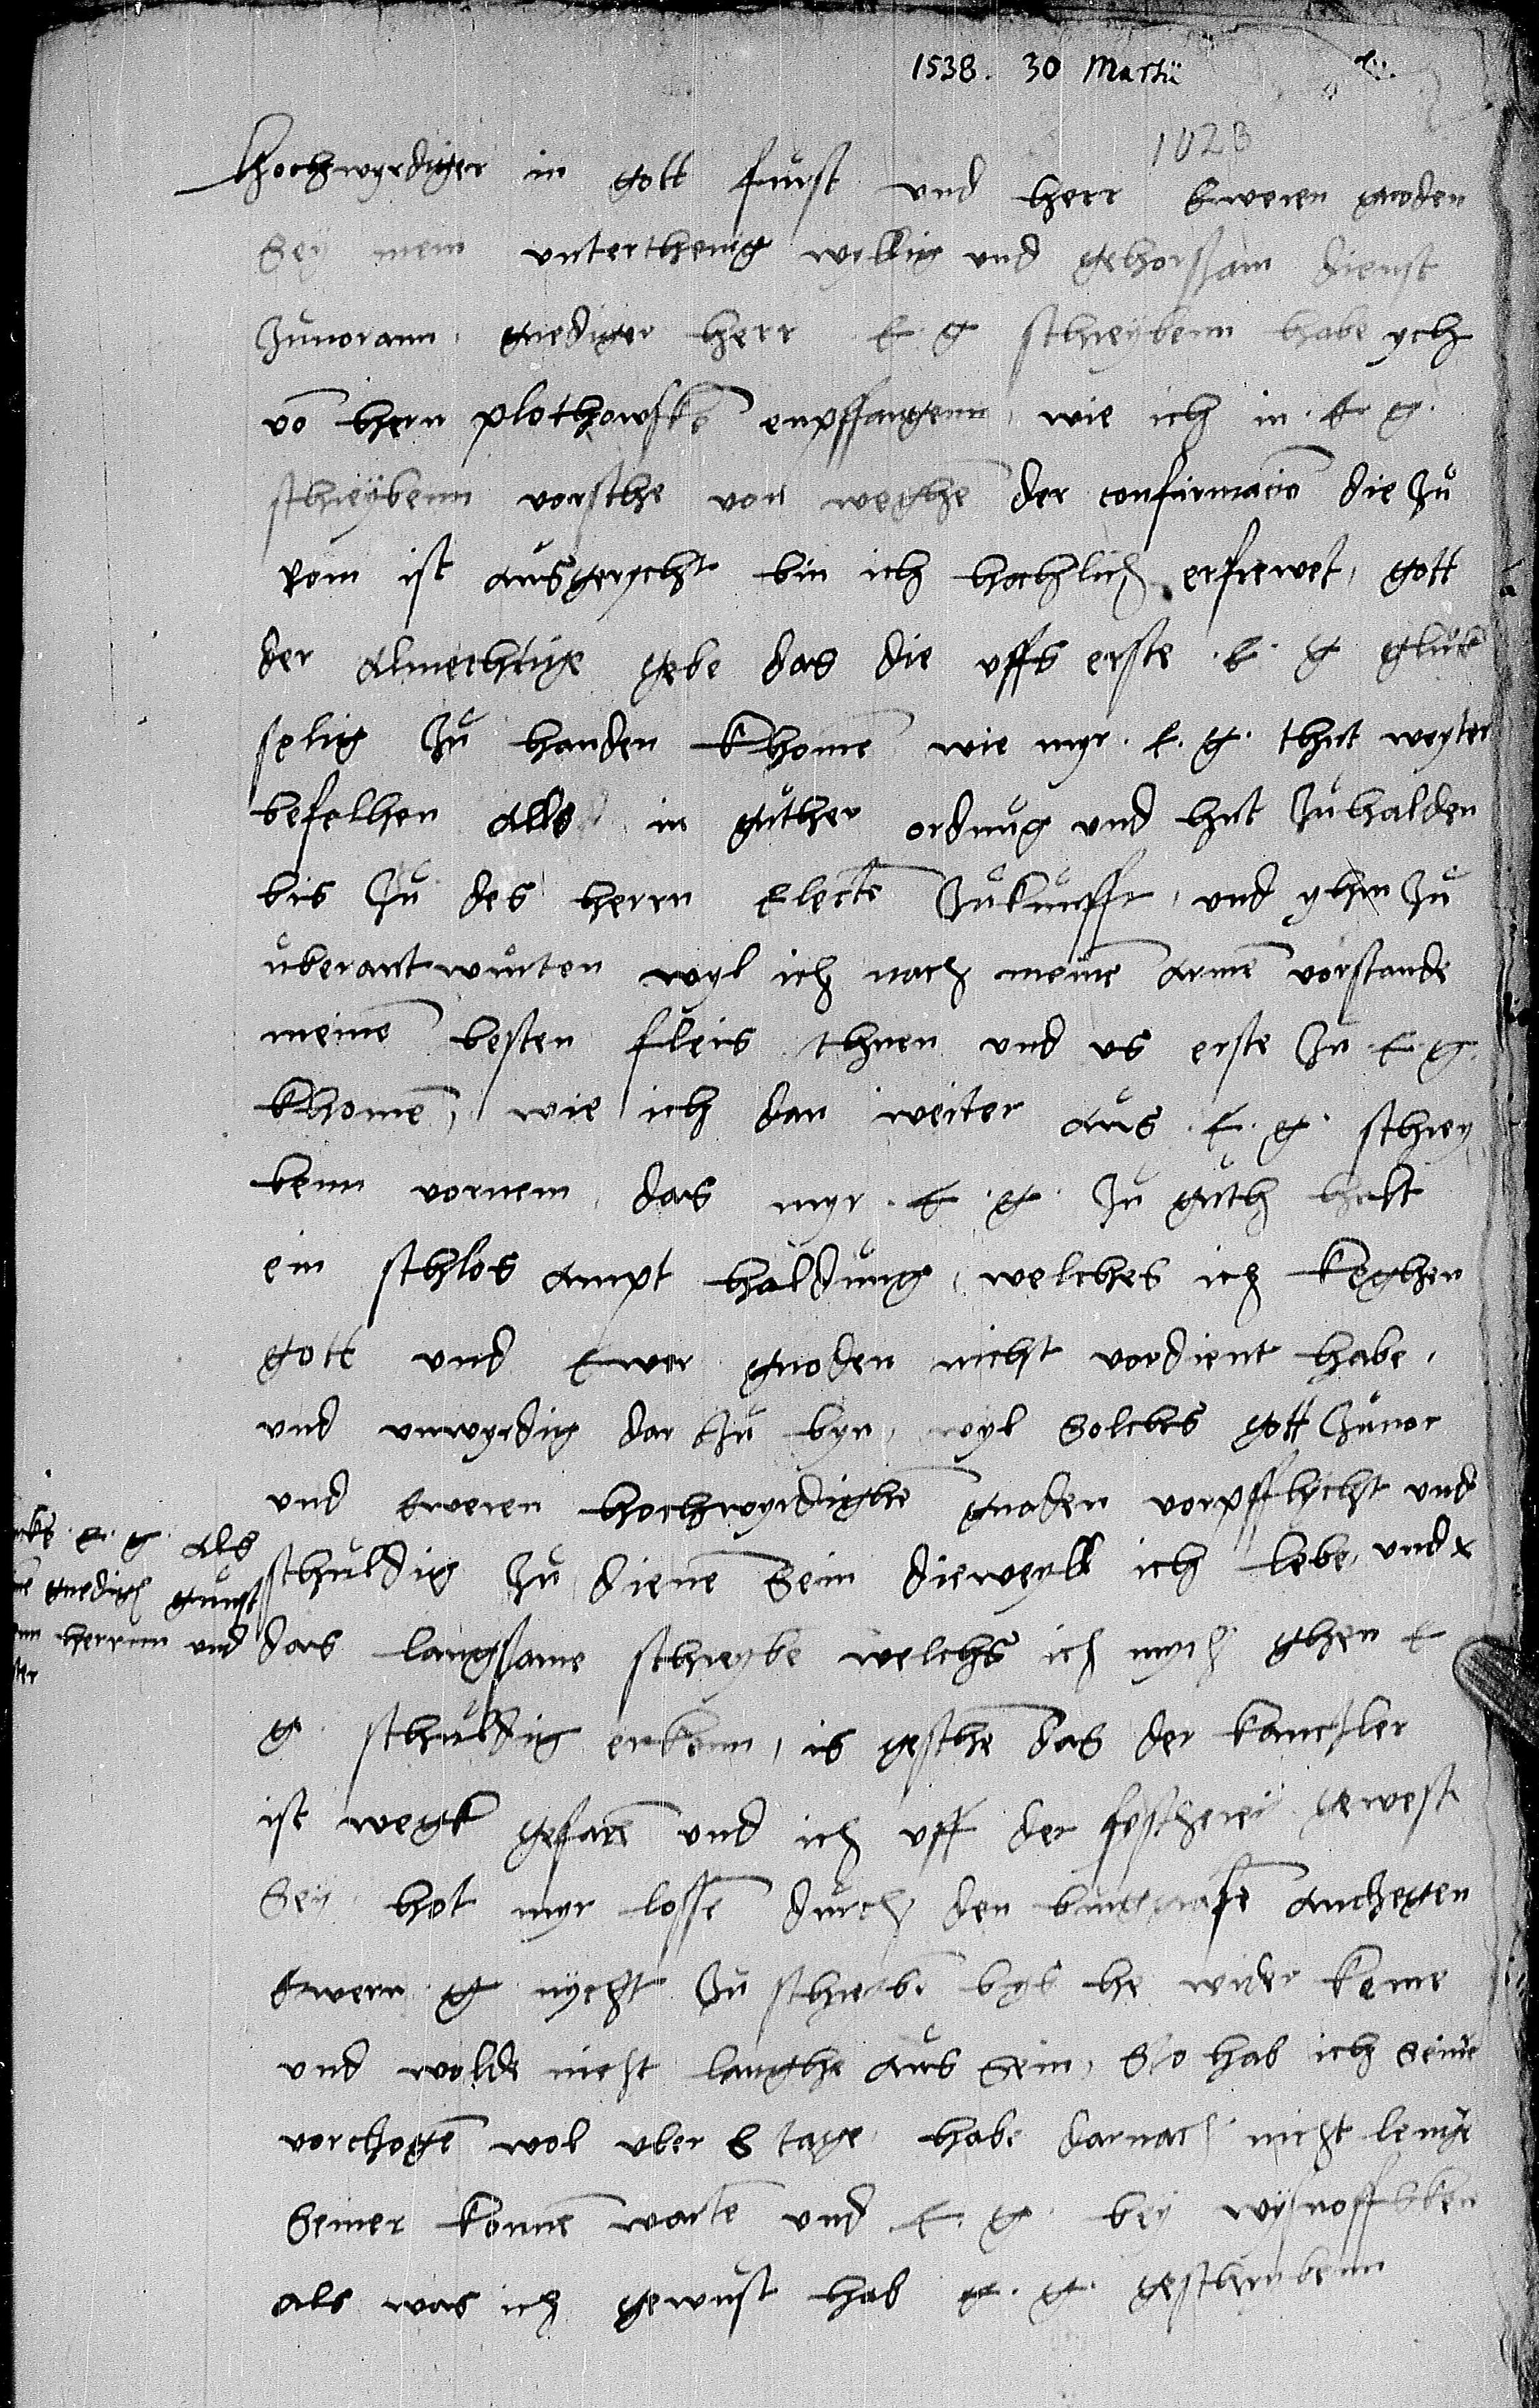 1538. 30 Martii
1023
Hochwyrdiger in gott furst und herr Eweren gnoden
Sey mein unterthenig wyllig und gehorsam dienst
zuvorann. gnediger herr E g schreybenn habe ych
vō hern plothowskē enpffangenn, wie ich in E. g.
schreybenn vorsthe von weghē der confirmaciō die zu
rom ist ausgerycht bin ich hochlich erfrewet, gott
der almechtige gebe das die uffs erste E. g gluk
selig zu handen khomē wie myr. E. g. thut weyter
befelhen alls in guther ordnūg und hut zuhalden
bis zu des herrn Electē zukunfft, und yhm zu
uberantwurten wyl ich nach meinē armē vorstande
meinē besten fleis thuen und us erste zu E. g.
khomē, wie ich dan weiter aus E. g. schrey
benn vornem, das myr. E. g. zu guth helt
ein schlos ampt haldung, welches ich keghen
gott und Ewer gnoden nicht vordient habe,
und unwyrdig dar zu byn, wyl Solchs gott zuvor
und Eweren hochwyrdighē gnaden vorpfflycht und
schuldig zu dienē Sein dieweyll ich lebe, und x
E. g als
gnedigē gunst
herrnn und
das langsame schreybē welchs ich mych ghen E
g. schuldig erkenn, is gescheē das der kanczler
ist wegk gefarē und ich uff der fyscherei gewest
Sey hot myr lossē durch den burggrafē anczegen
Ewern g nycht zu schreibē bys he wider keme
und wolde nicht langhe aus Sein, So hab ich Seinē
vorczogē wol uber 8 tage, habe darnach nicht lengē
Seiner konnē wartē und E. g. bey wysnoffsken
als was ich gewust hab E. g. geschreibenn